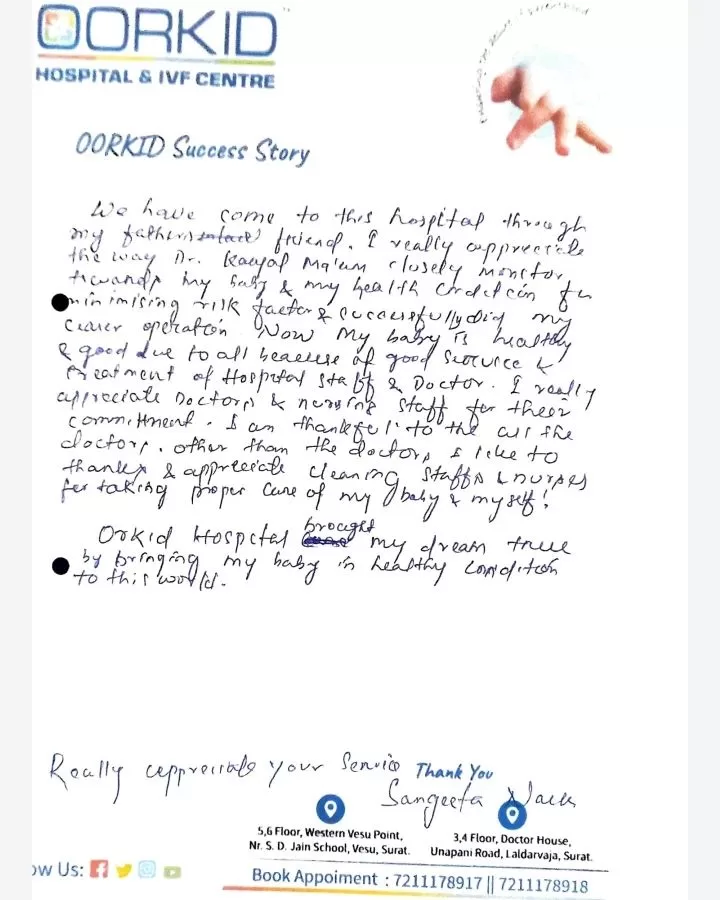 OORKID
HOSPITAL & IVF CENTRE
OORKID Success Story
We have come to this hospital through
my father's friend. I really appreciate
the way Dr. Ma'am closely monitor
towards my baby & my health condition for
minimising risk factor & successfully did my
operation Now My baby is healthy
& good due to all because of good Service &
treatment of Hospital Staff & Doctor. I really
appreciate Doctors & nursing staff for their
commitment. I am thankful to the all the
doctors. other than the doctors I like to
thanks & appreciate cleaning staffs & nurses
for taking proper care of my baby & myself!
Orkid Hospital brought my dream true
by bringing my baby in healthy condition
to this world.
Really appreciate your Service Thank You
Sangeeta
5,6 Floor, Western Vesu Point,
Nr. S. D. Jain School, Vesu, Surat.
3,4 Floor, Doctor House,
Unapani Road, Laldarvaja, Surat.
ow Us:
Book Appoiment : 7211178917 || 7211178918